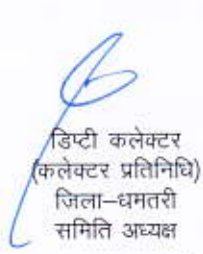 डिप्टी कलेक्टर
(कलेक्टर प्रतिनिधि)
जिला–धमतरी
समिति अध्यक्ष